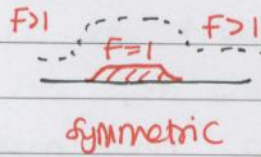 F>1 F>1
F=1
symmetric